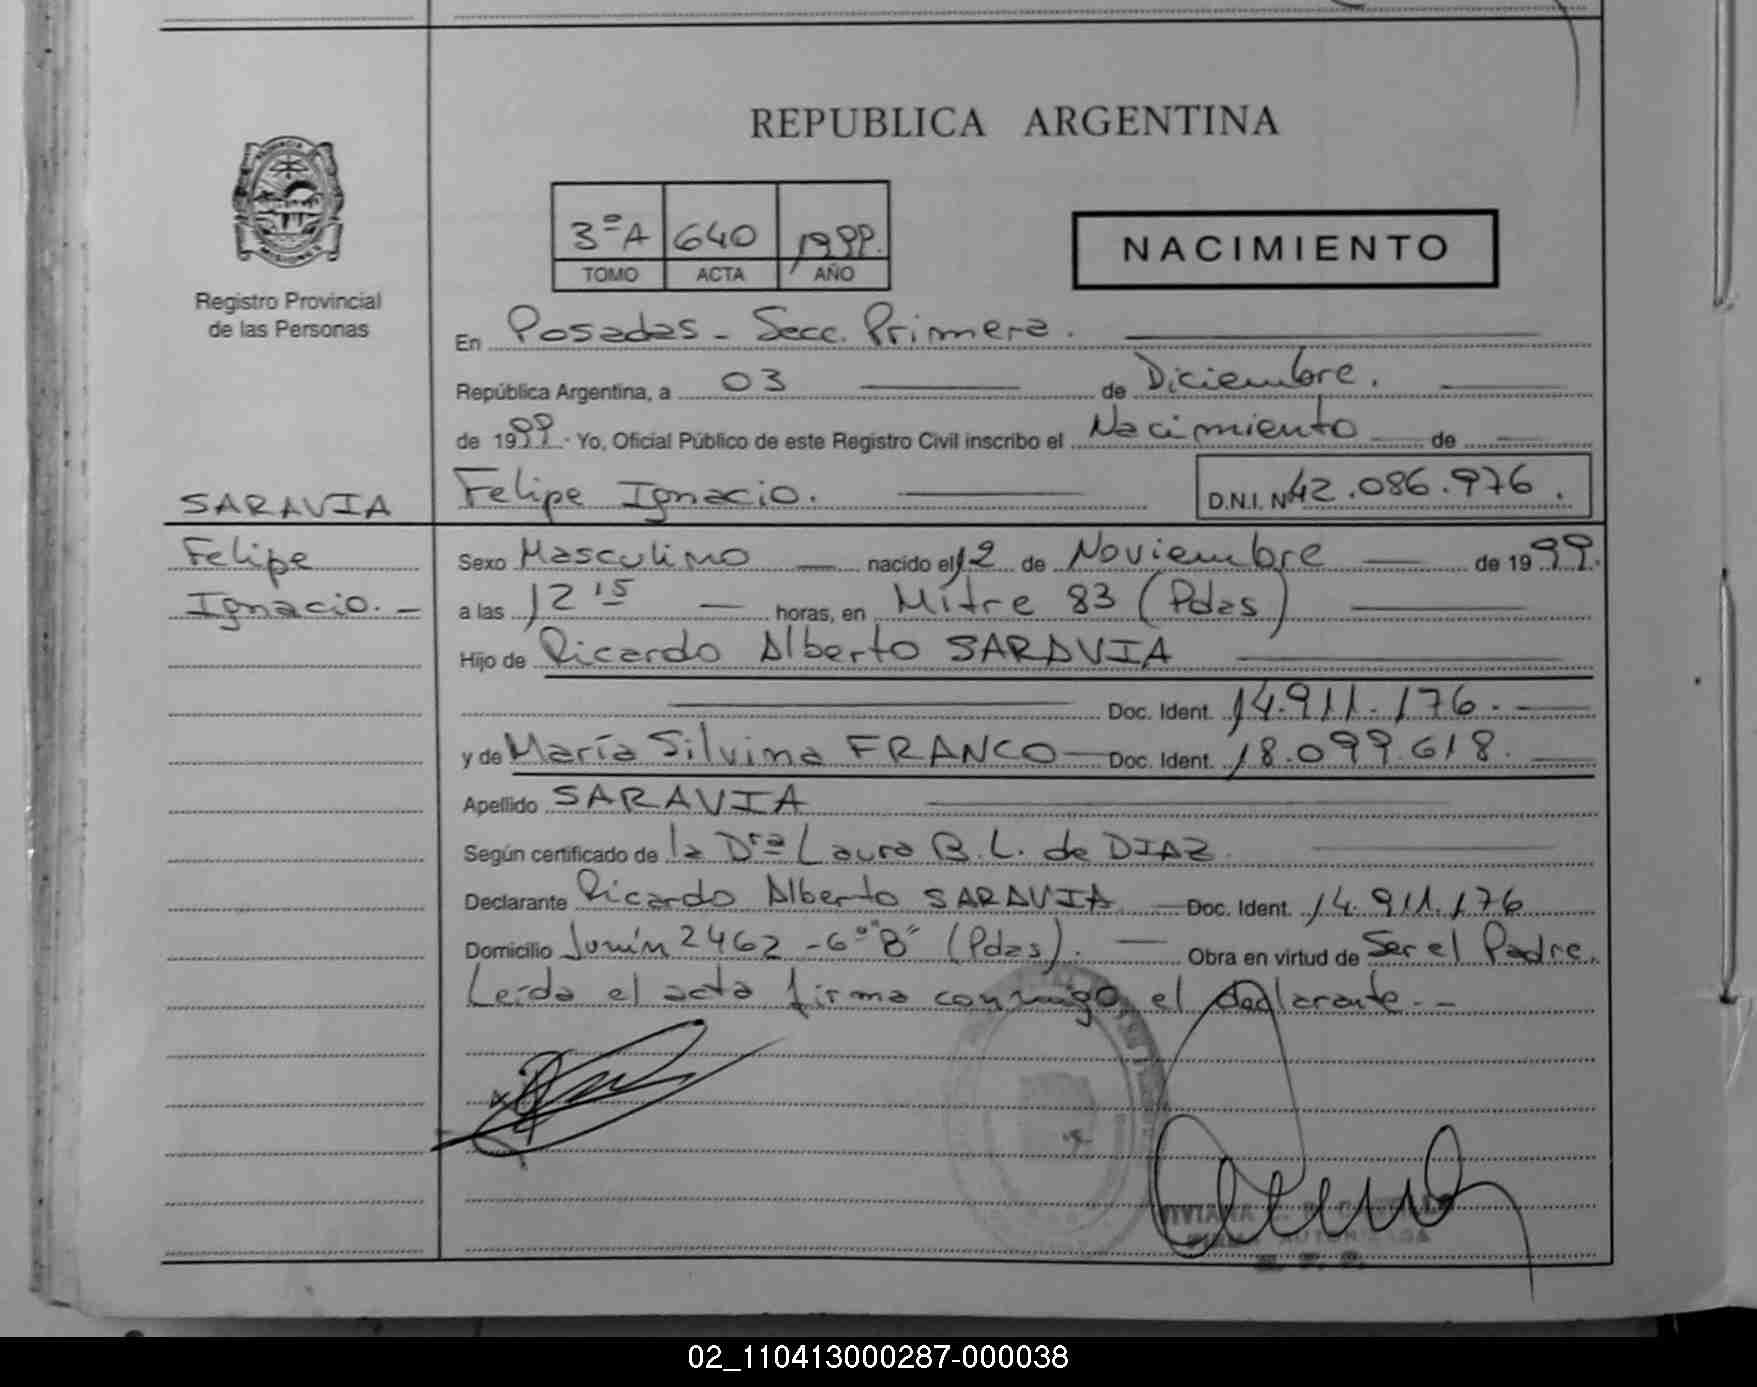 REPUBLICA ARGENTINA
PROVINCIA
MISIONES
Registro Provincial
de las Personas
3ºA 640 1999.
TOMO ACTA AÑO
NACIMIENTO
En Posadas - Secc. Primera.
República Argentina, a 03 de Diciembre.
de 1999. Yo, Oficial Público de este Registro Civil inscribo el Nacimiento de
SARAVIA Felipe Ignacio. D.N.I. Nº 42.086.976.
Felipe
Ignacio. -
Sexo Masculino nacido el 12 de Noviembre de 1999.
a las 12 15 horas, en Mitre 83 (Pdas)
Hijo de Ricardo Alberto SARAVIA
Doc. Ident. 14.911.176.
y de María Silvina FRANCO Doc. Ident. 18.099.618.
Apellido SARAVIA
Según certificado de la Dra Laura B. L. de DIAZ.
Declarante Ricardo Alberto SARAVIA Doc. Ident. 14.911.176
Domicilio Junín 2462 - 6º "B" (Pdas). Obra en virtud de Ser el Padre.
Leída el acta firma conmigo el declarante. -
02_110413000287-000038